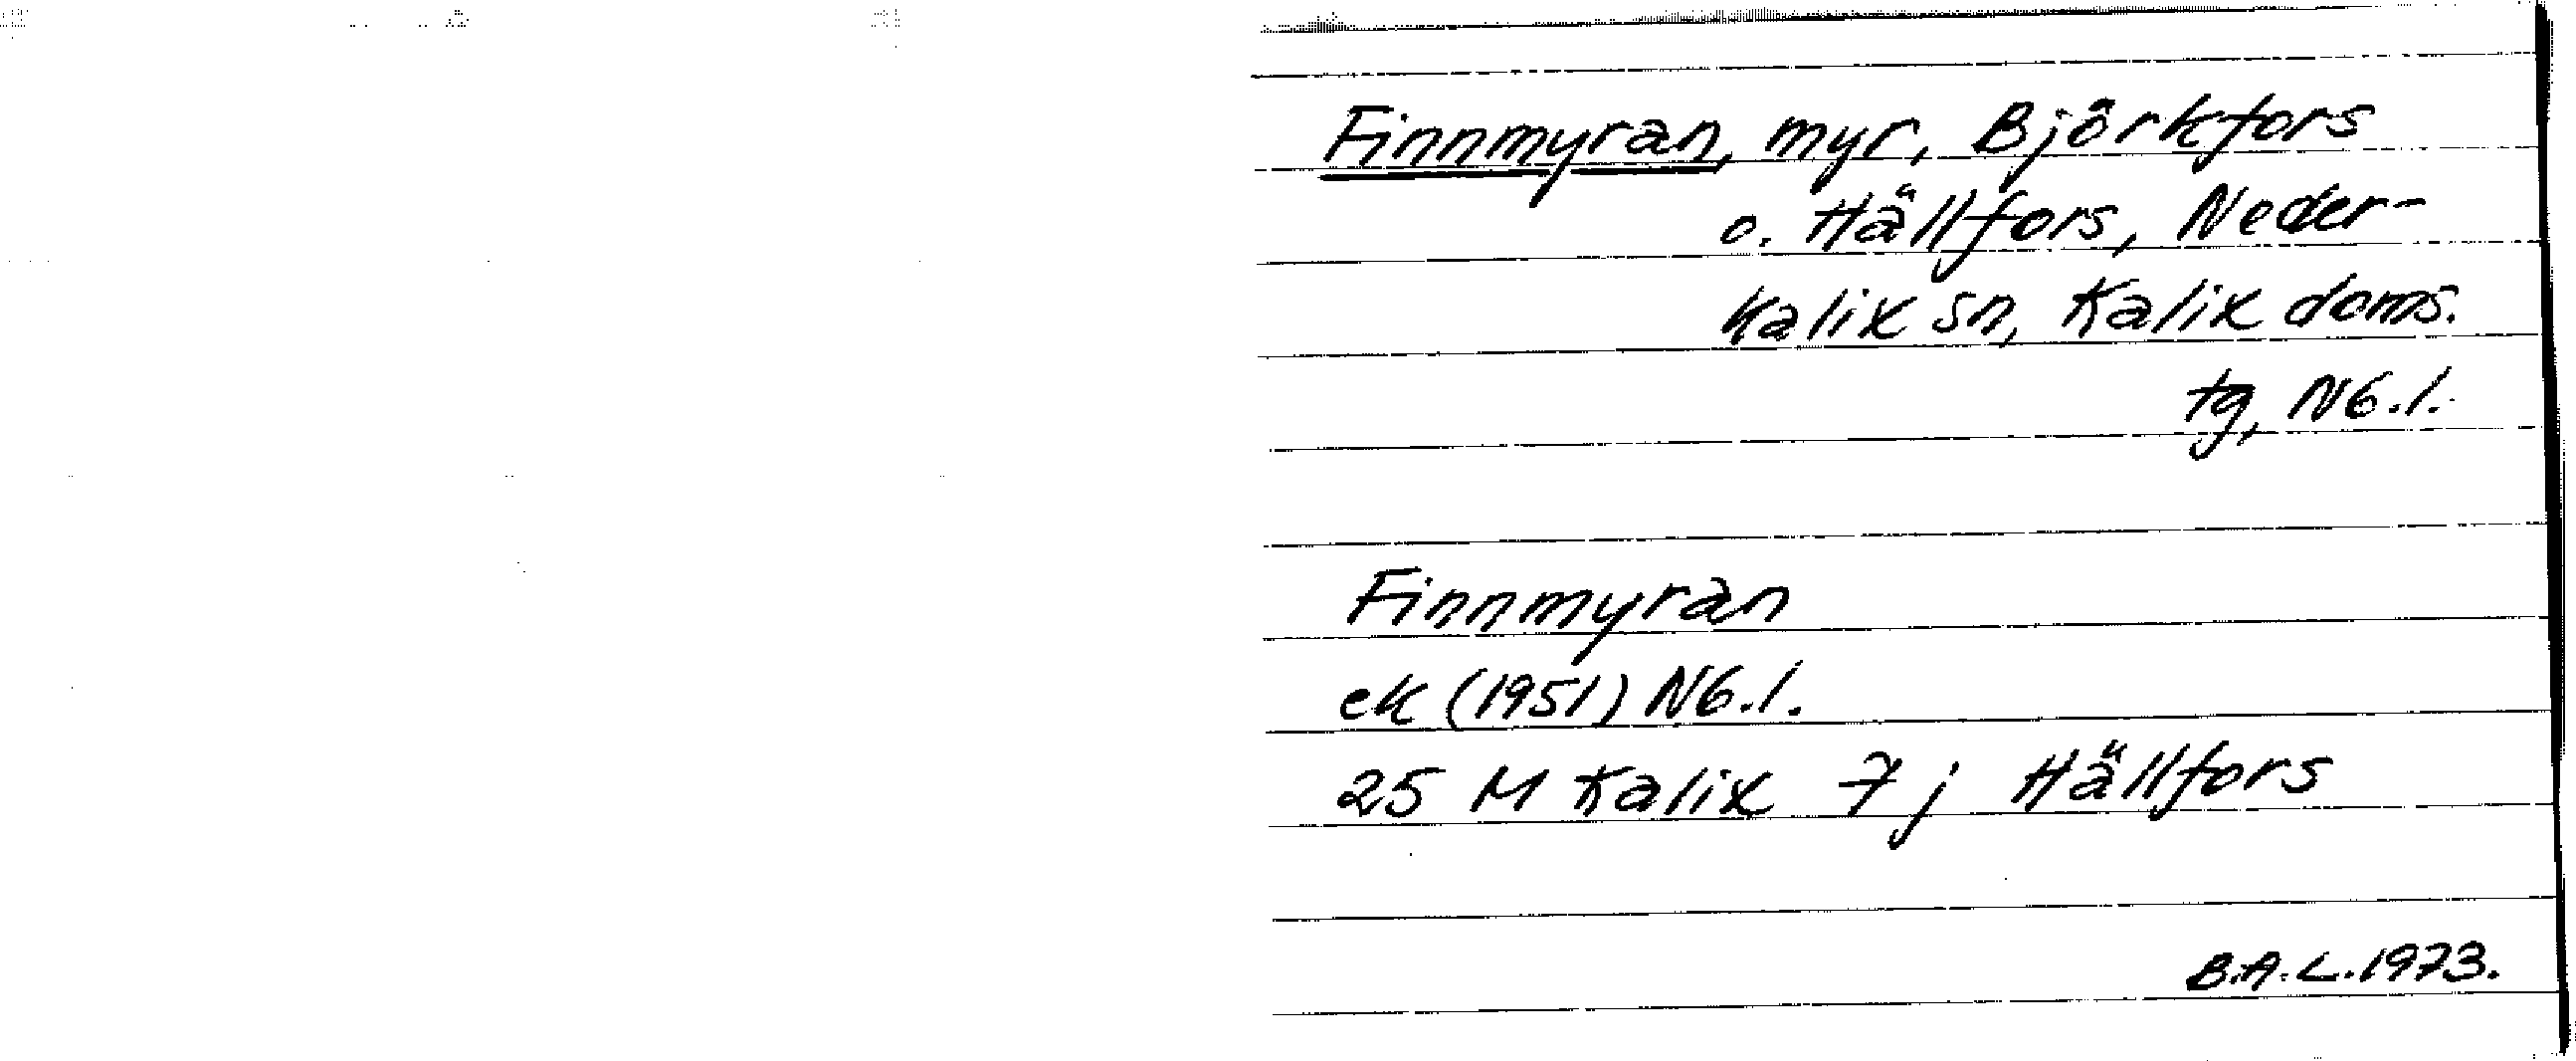 Finnmyran, myr, Björkfors
o. Hällfors, Neder-
kalix sn, Kalix doms.
tg, Nb.l.
Finnmyran
ek (1951) Nb.l.
25 M Kalix 7 j Hällfors
B.A.L. 1973.